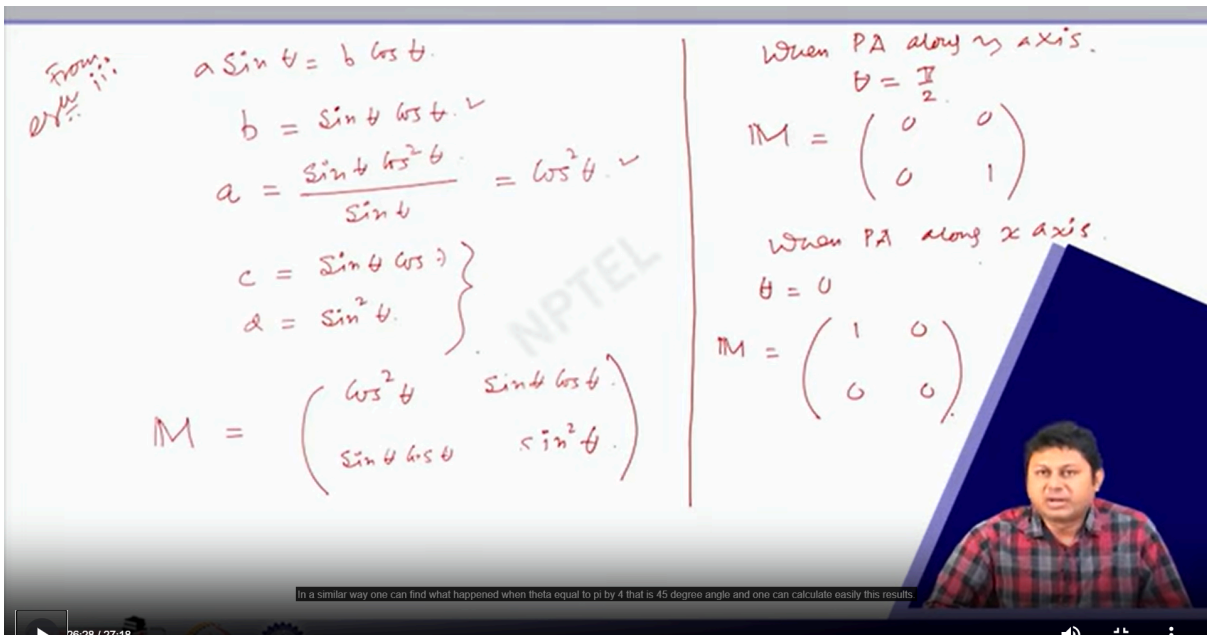 From
eqn iii
a Sin θ = b Cos θ.
b = Sin θ Cos θ. ✓
a = Sin θ Cos² θ / Sin θ = Cos² θ. ✓
c = Sin θ Cos θ
d = Sin² θ.
M = ( Cos² θ Sin θ Cos θ.
Sin θ Cos θ Sin² θ. )
When PA along y axis.
θ = π/2.
M = ( 0 0
0 1 )
When PA along x axis.
θ = 0
M = ( 1 0
0 0 ).
NPTEL
In a similar way one can find what happened when theta equal to pi by 4 that is 45 degree angle and one can calculate easily this results.
26:28 / 27:18